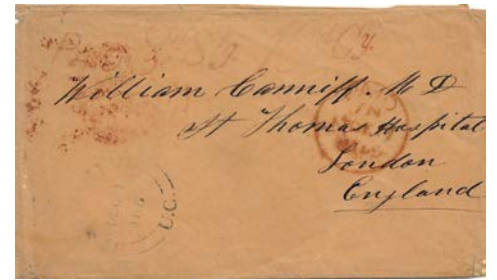 Cy.
William Canniff. M D
St Thomas Hospital
London
England
U.C.